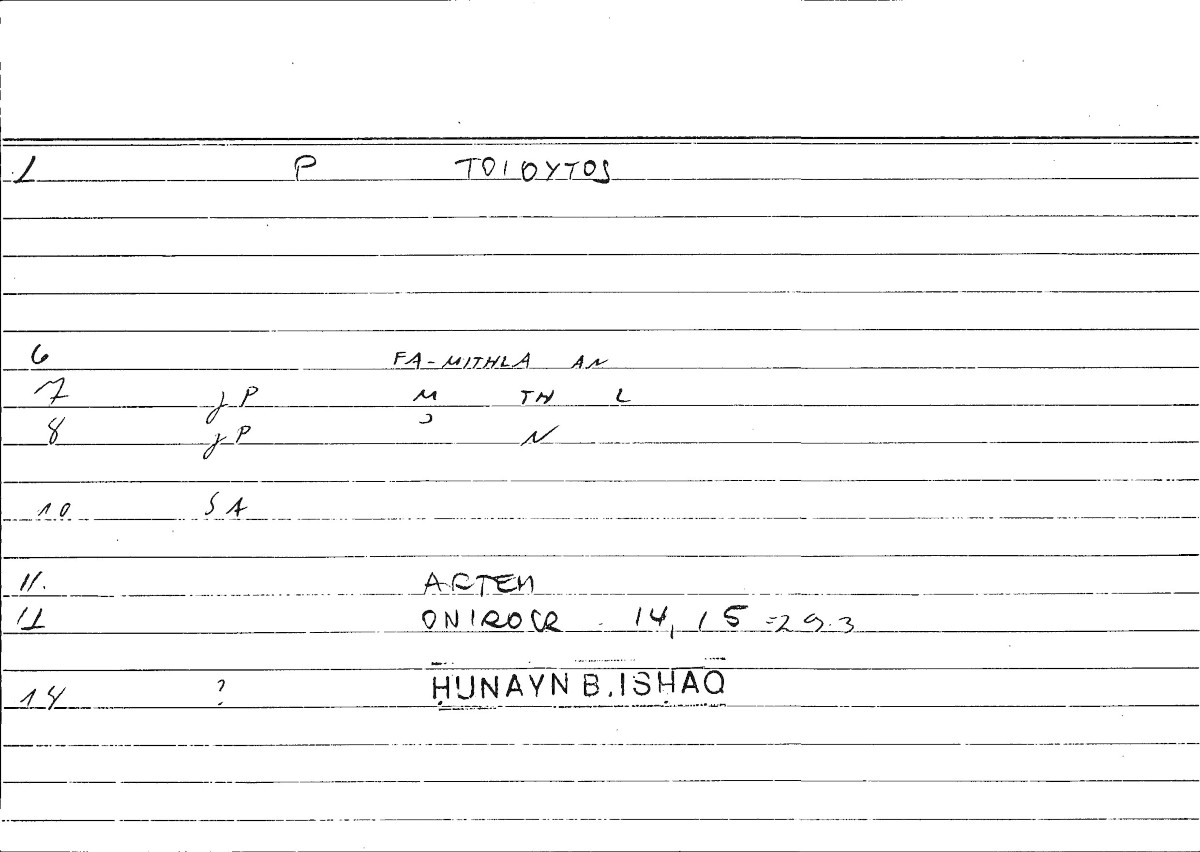 1 P ΤΟΙΟΥΤΟS
6 FA-MITHLA AN
7 jP M TH L
8 jP ɔ N
10 SA
11. ARTEM
11 ONIROCR. 14,15 =29.3
14 ? ḤUNAYN B.ISḤAQ